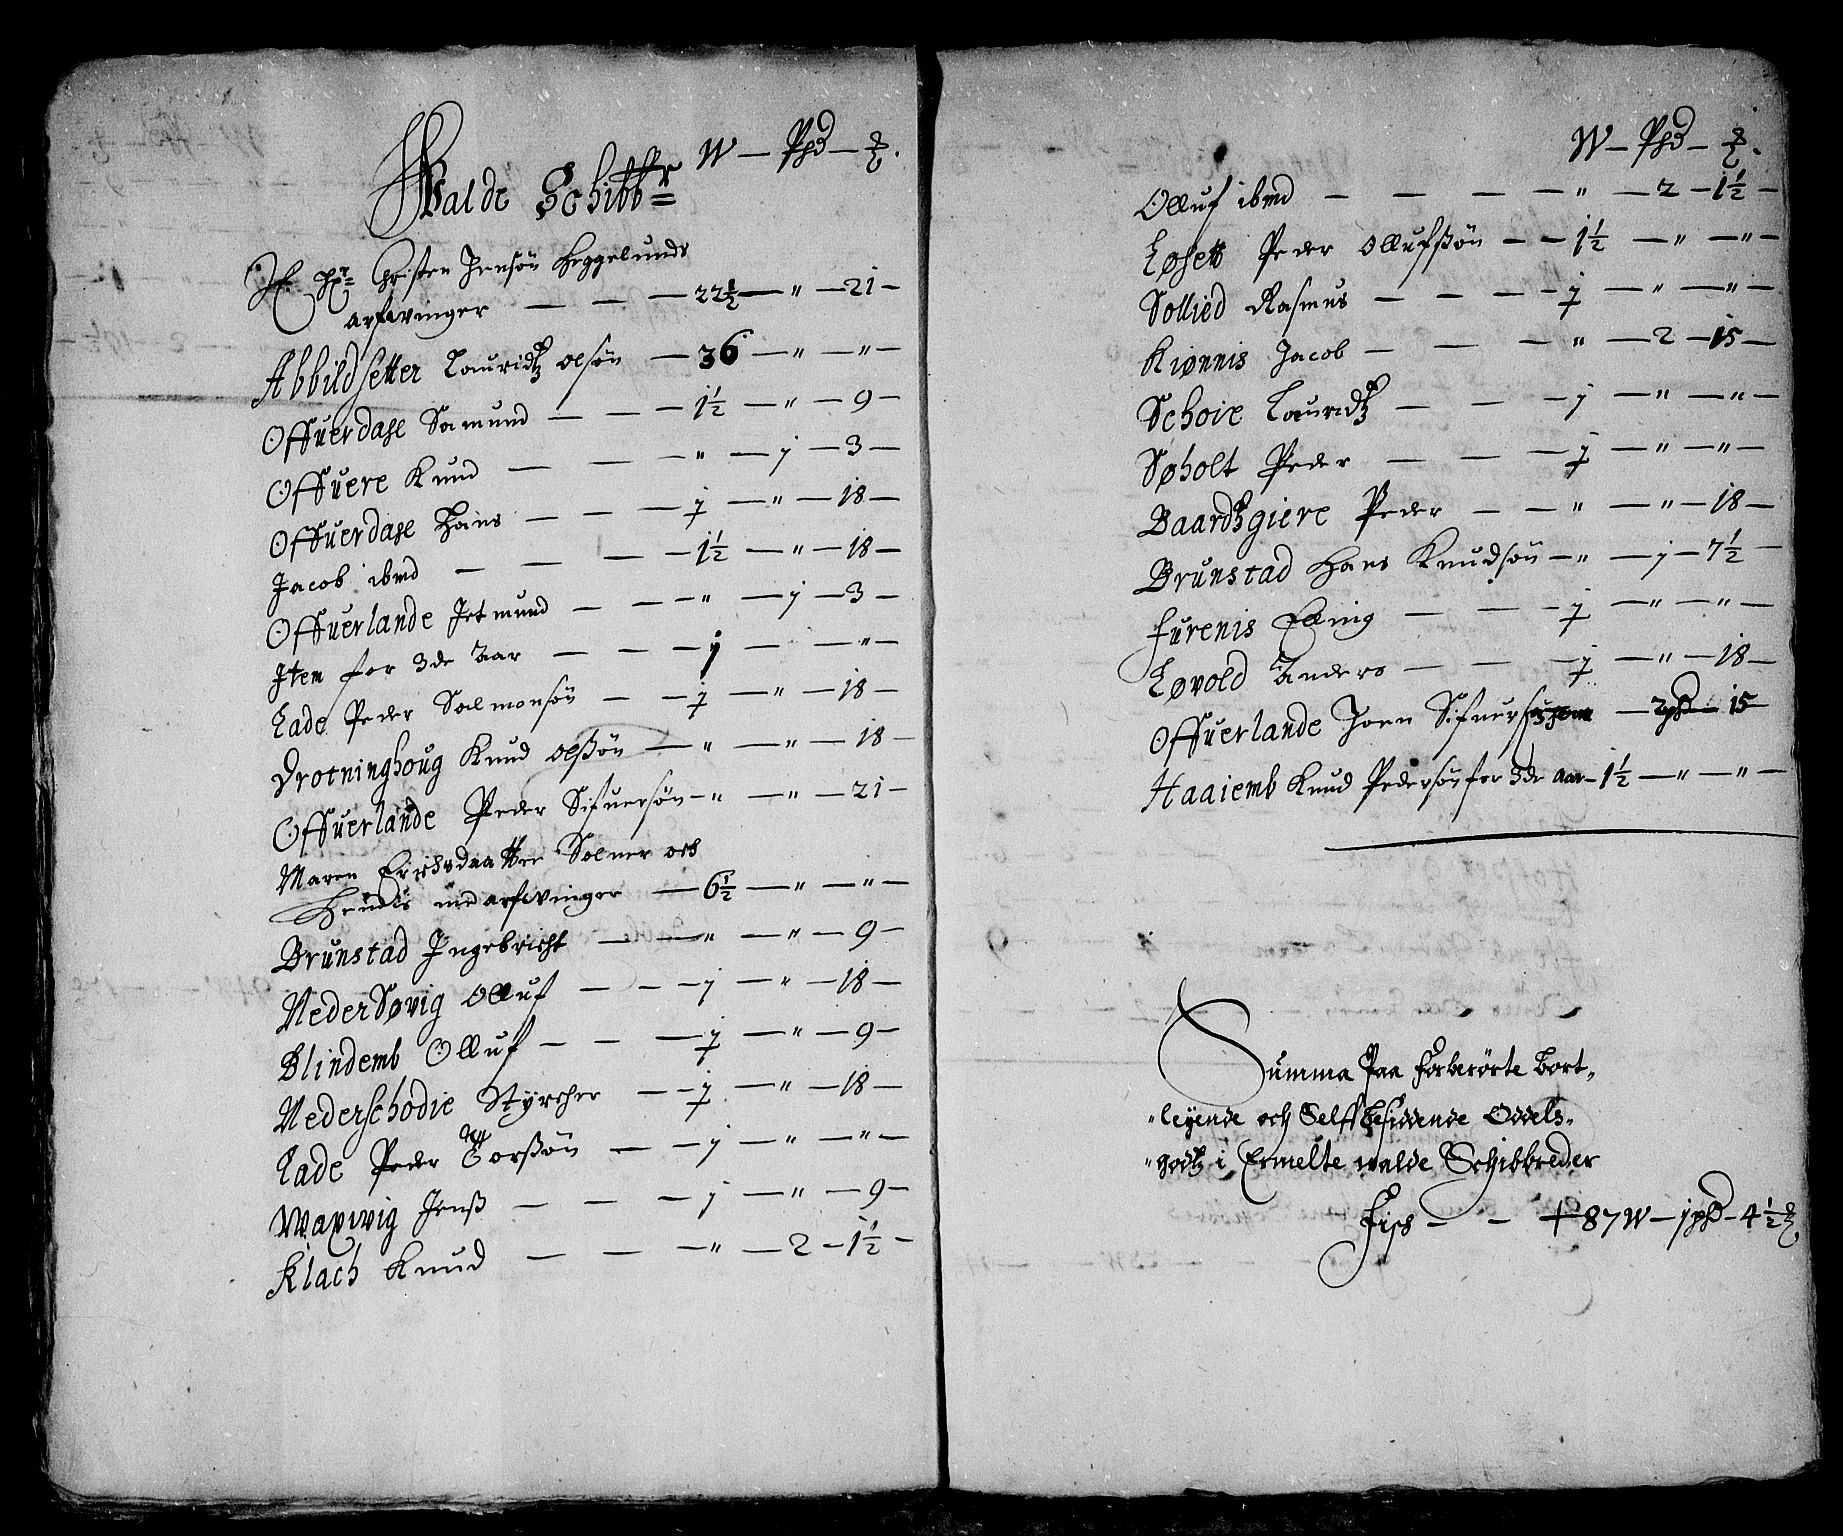 W — Phd — ℔.
Walde Schibbr
H. Hr. Christen Jensøn heggelunds
arfvinger — — — 22½ — " — 21 —
Abbildsetter Lauridtz olsøn — 36 — " — " —
Offuerdase Samund — — — 1½ — " — 9 —
Offuere Knud — — — " — j — 3 —
Offuerdase Hans — — — j — " — 18 —
Jacob ibmd — — — 1½ — " — 18 —
Offuerlande Jetmund — — — " — j — 3 —
Item for 3de Aar — — — j — — " —
Lade Peder Salmonsøn — — j — " — 18 —
Drotninghoug Knud olßøn — " — " — 18 —
Offuerlande Peder Sifuersøn — " — " — 21 —
Maren Erichsdaatter Solner och
Hendis med arfvinger — 6½ — " — " —
Brunstad Ingebricht — — " — " — 9 —
Neder Søvig Olluf — — — j — " — 18 —
Blindemb Olluf — — — j — " — 9 —
Nederschodie Styrcher — — j — " — 18 —
Lade Peder Torßøn — — j — " — " —
Waxwig Jenß — — — j — " — 9 —
Klach Knud — — — " — 2 — 1½ —
W — Phd — ℔.
Olluf ibmd — — — — " — 2 — 1½ —
Løsett Peder Ollufßøn — — 1½ — " — " —
Sollied Rasmus — — — — j — " — " —
Kiønnis Jacob — — — " — 2 — 15 —
Schoie Lauridtz — — — j — " — " —
Søholt Peder — — — j — " — " —
Baardtzgiere Peder — — " — " — 18 —
Brunstad Hans Knudsøn — " — j — 7½ —
Furenis Elling — — — j — " — " —
Løvold Anders — — — j — " — 18 —
Offuerlande Joen Sifuersøn — 2phd — 15 —
Haaiemb Knud Pedersøn for 3de aar — 1½ — " — " —
Summa Paa Forberørte bort„
„leyende och Selffbesiddende Oddels„
„godtz i Ermelte walde Schibbreder
Fisch — — 87 W — 1 phd — 4½ ℔